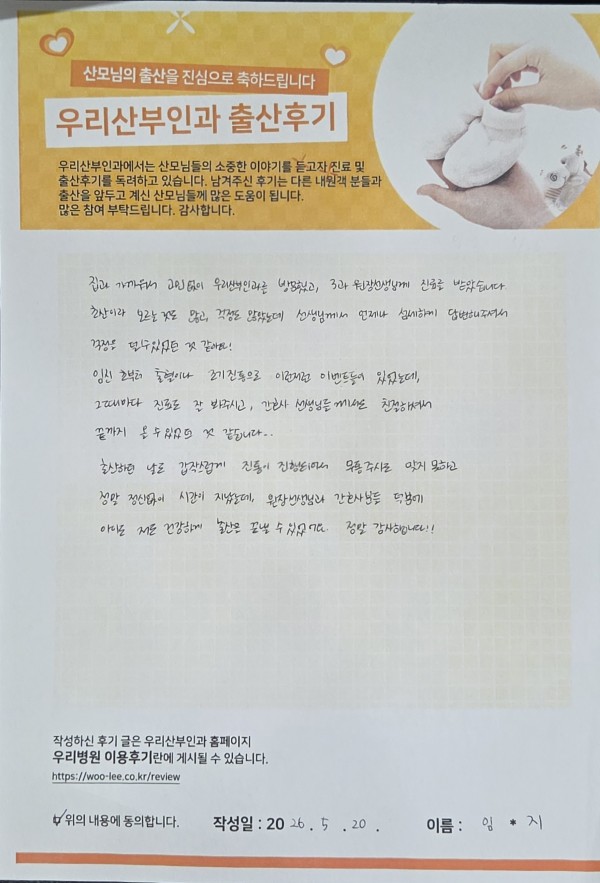 산모님의 출산을 진심으로 축하드립니다
우리산부인과 출산후기
우리산부인과에서는 산모님들의 소중한 이야기를 듣고자 진료 및
출산후기를 독려하고 있습니다. 남겨주신 후기는 다른 내원객 분들과
출산을 앞두고 계신 산모님들께 많은 도움이 됩니다.
많은 참여 부탁드립니다. 감사합니다.
집과 가까워서 고민없이 우리산부인과를 방문했고, 3과 원장선생님께 진료를 받았습니다
초산이라 모르는 것도 많고, 걱정도 많았는데 선생님께서 언제나 섬세하게 답변해주셔서
걱정을 덜 수 있었던 것 같아요!
임신 초부터 출혈이나 조기진통으로 이런저런 이벤트들이 있었는데,
그때마다 진료도 잘 봐주시고, 간호사 선생님들께서도 친절하셔서
끝까지 올 수 있었던 것 같습니다..
출산하던 날도 갑작스럽게 진통이 진행되어서 무통주사도 맞지 못하고
정말 정신없이 시간이 지났는데, 원장선생님과 간호사분들 덕분에
아이도 저도 건강하게 출산을 끝낼 수 있었어요. 정말 감사합니다!!
작성하신 후기 글은 우리산부인과 홈페이지
우리병원 이용후기란에 게시될 수 있습니다.
https://woo-lee.co.kr/review
위의 내용에 동의합니다. 작성일 : 2026. 5. 20. 이름 : 임 * 지